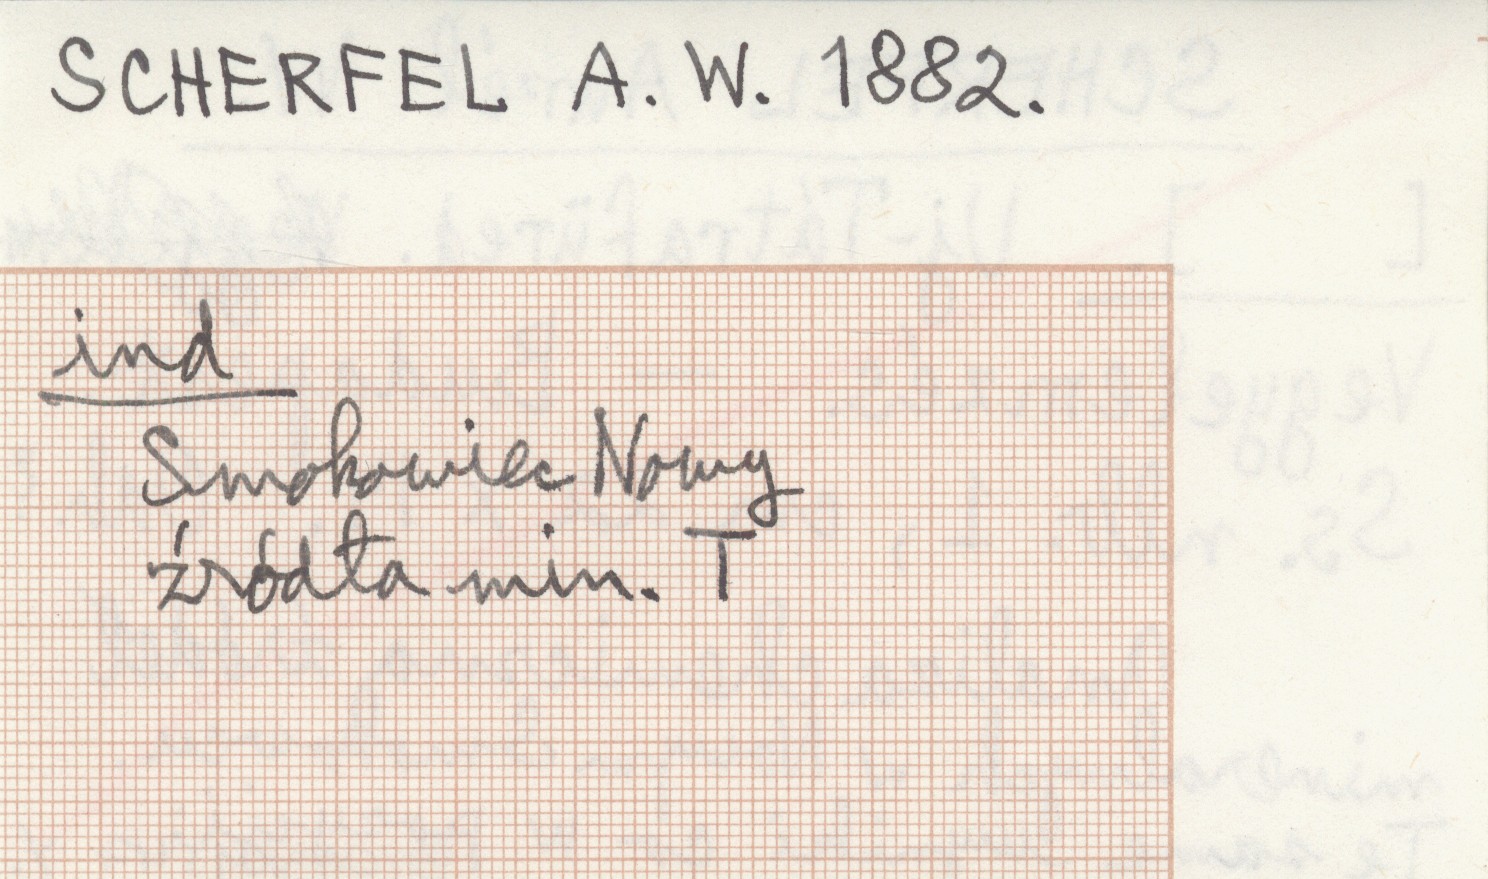 SCHERFEL A. W. 1882.
ind
Smokowiec Nowy
źródła min. T